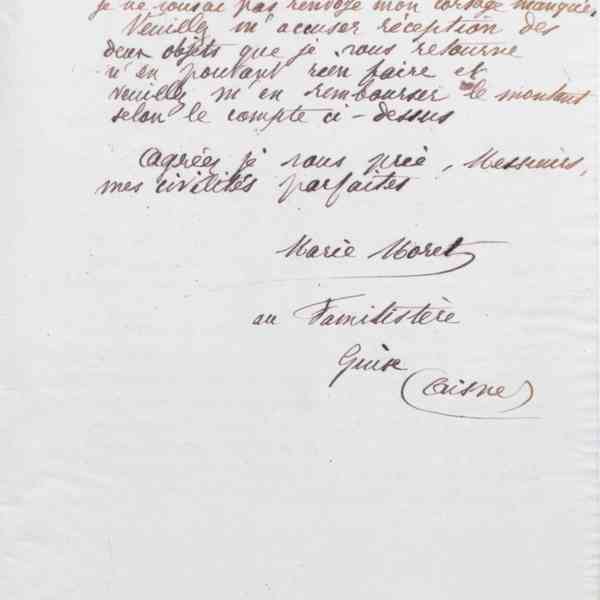 je ne pas renvoyé mon corsage manqué.
Veuillez m'accuser réception des
deux objets que je vous retourne
n'en pouvant rien faire et
veuillez m'en rembourser le montant
selon le compte ci-dessus
Agréez je vous prie, Messieurs,
mes civilités parfaites
Marie Moret
au Familistère
Guise
(Aisne)